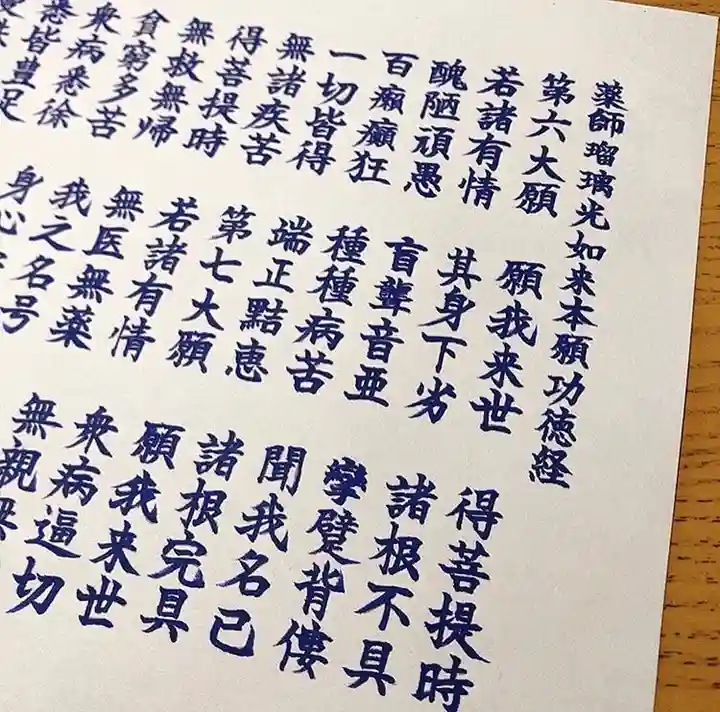 薬師瑠璃光如来本願功徳経
第六大願 願我来世 得菩提時
若諸有情 其身下劣 諸根不具
醜陋頑愚 盲聾音亜 攣躄背僂
百癩癲狂 種種病苦 聞我名已
一切皆得 端正點恵 諸根完具
無諸疾苦 第七大願 願我来世
得菩提時 若諸有情 衆病逼切
無救無帰 無医無薬 無親無
貧窮多苦 我之名号
衆病悉徐 身心
悉皆豊足